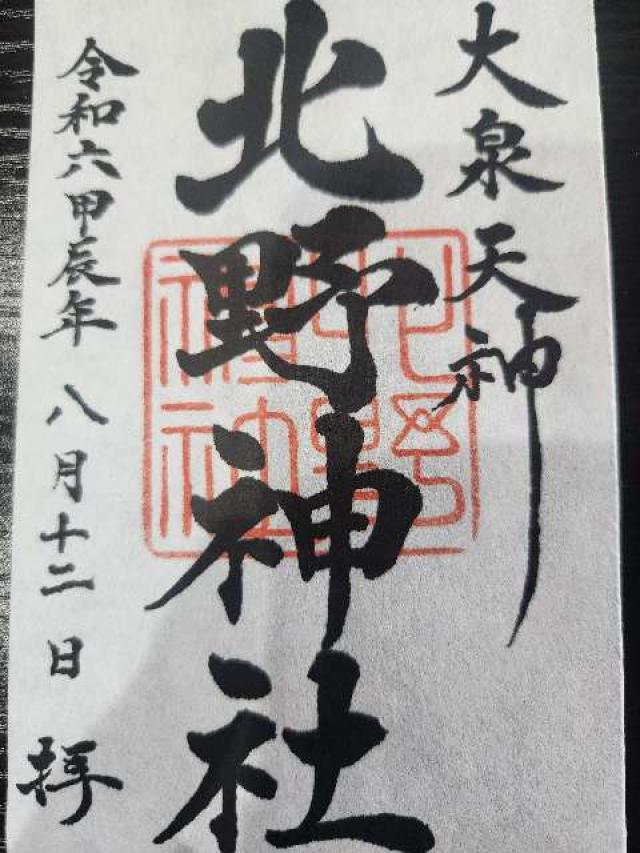 大泉天神
北野神社
令和六甲辰年 八月十二日 拝